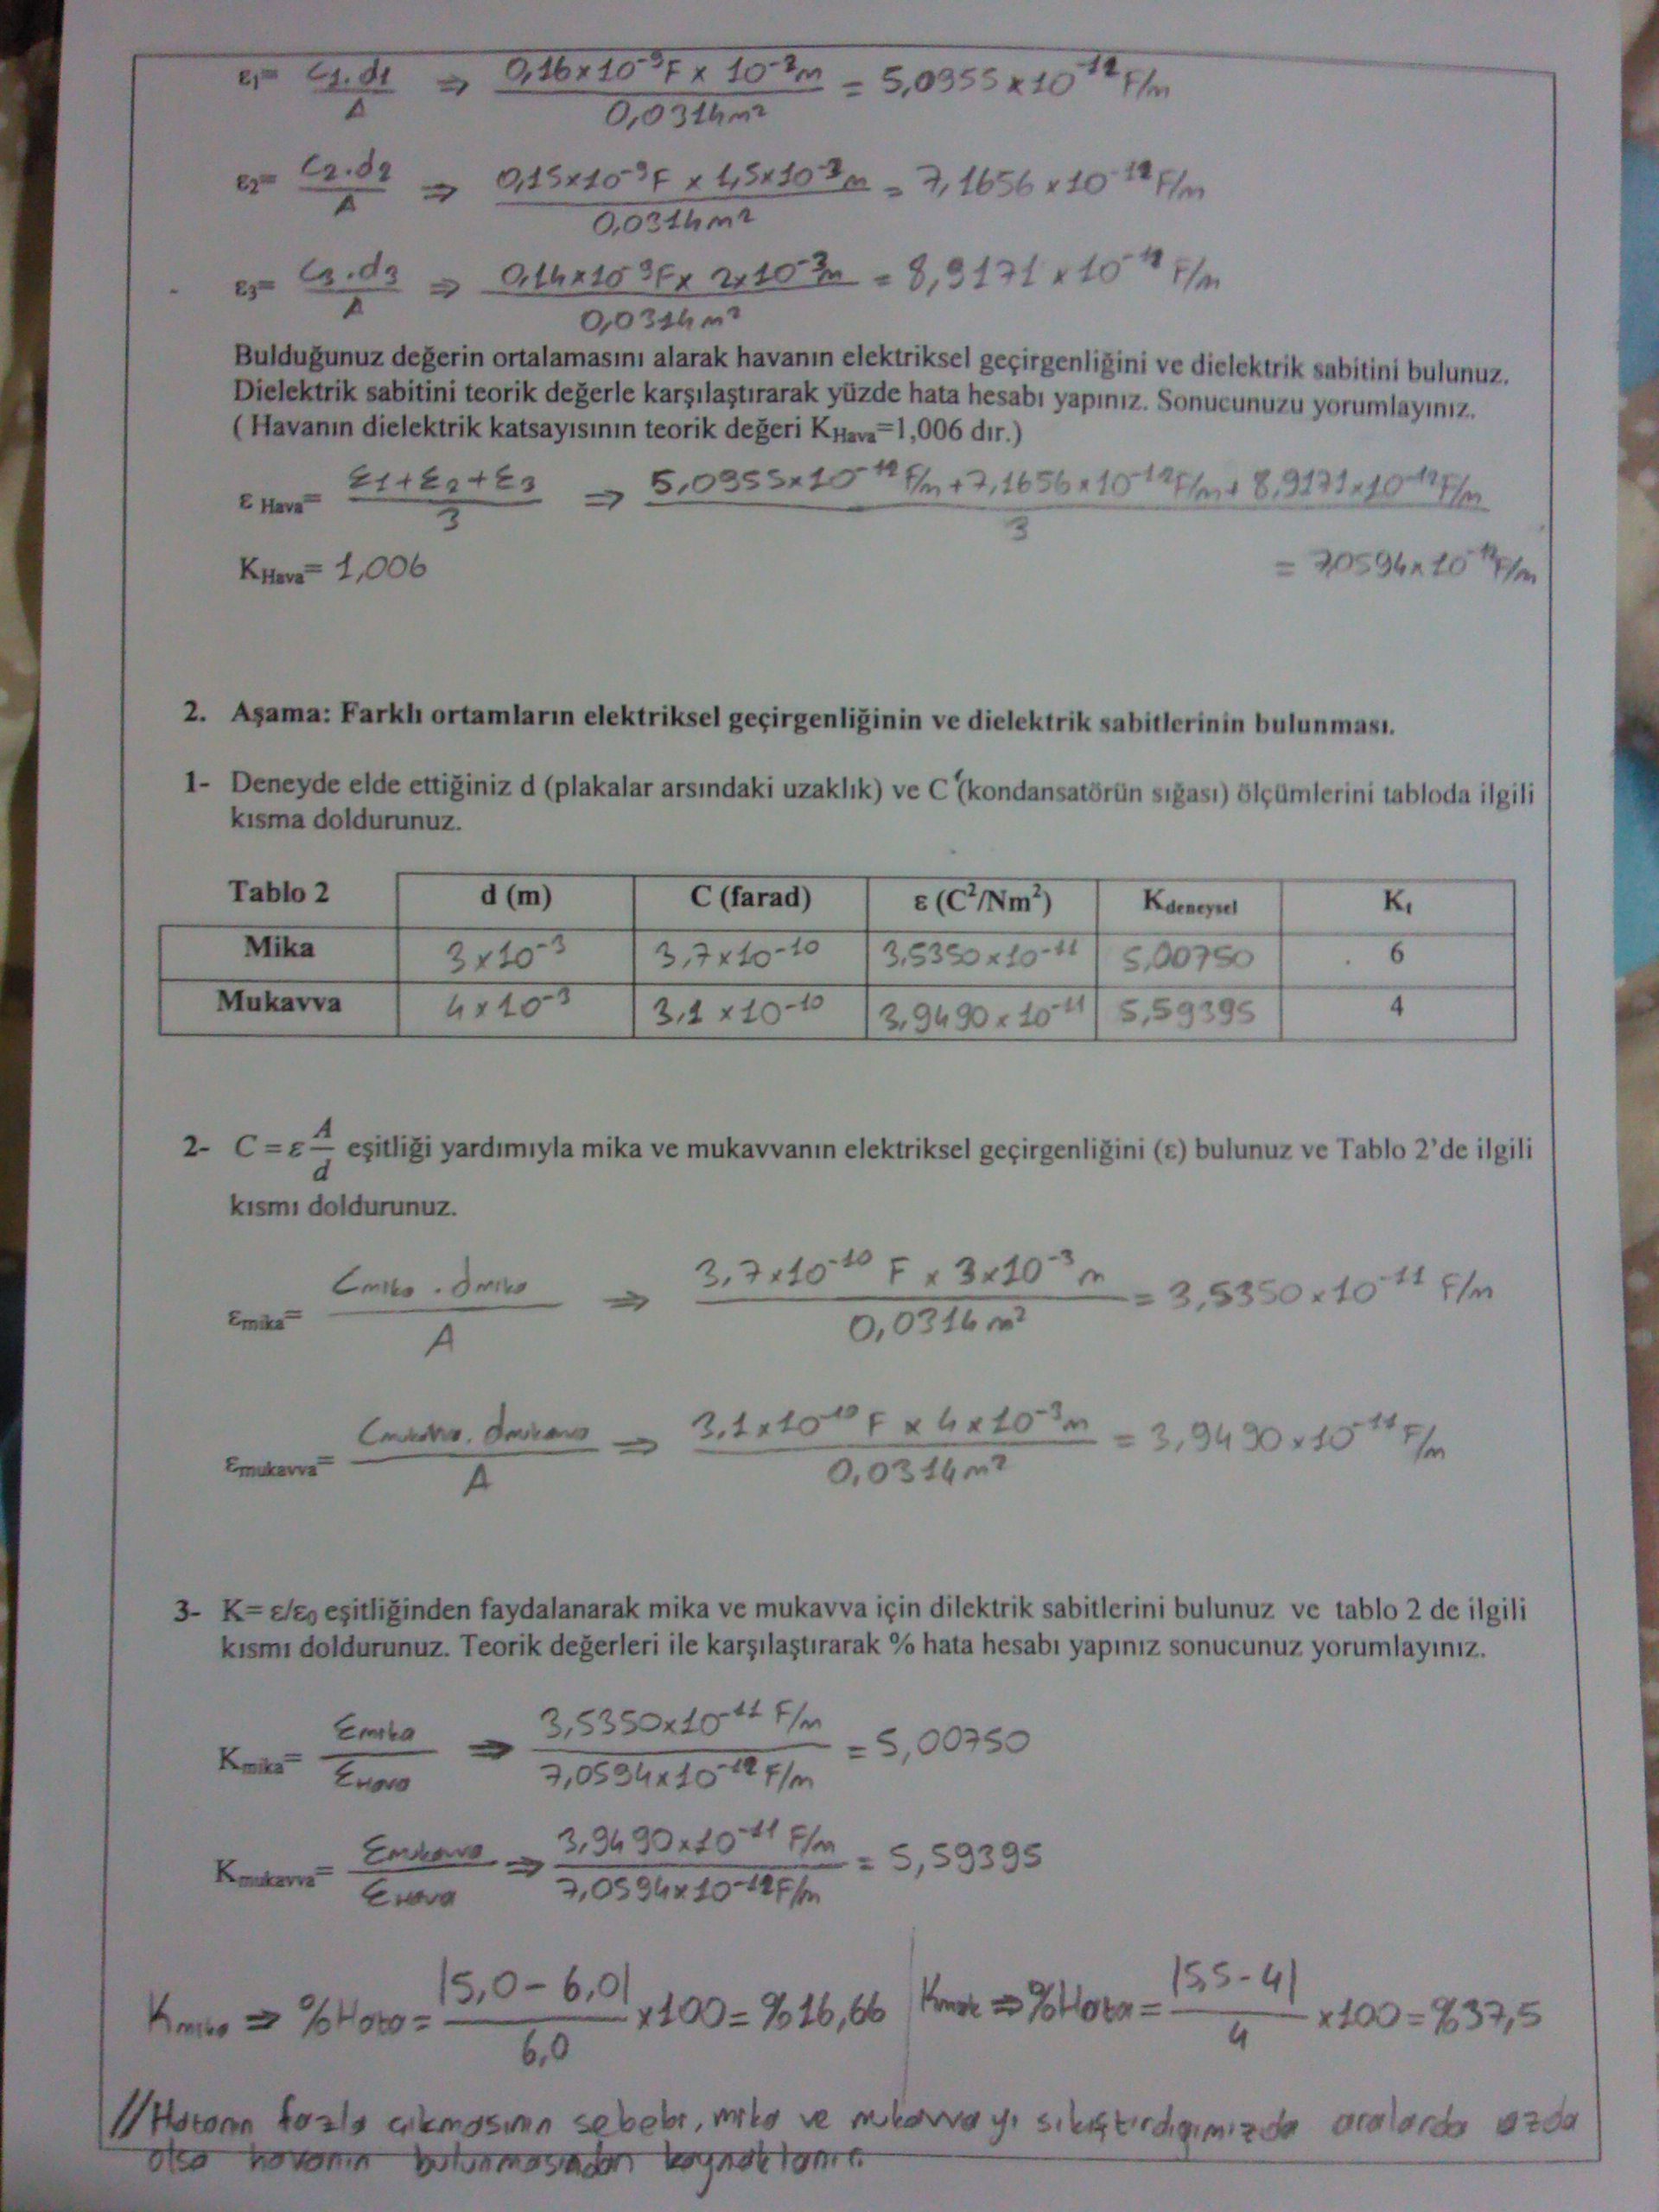 ε₁= C1.d1 / A ⇒ 0,16x10⁻⁹F x 10⁻³m / 0,0314m² = 5,0955x10⁻¹² F/m
ε₂= C2.d2 / A ⇒ 0,15x10⁻⁹F x 1,5x10⁻³m / 0,0314m² = 7,1656x10⁻¹² F/m
ε₃= C3.d3 / A ⇒ 0,14x10⁻⁹F x 2x10⁻³m / 0,0314m² = 8,9171x10⁻¹² F/m
Bulduğunuz değerin ortalamasını alarak havanın elektriksel geçirgenliğini ve dielektrik sabitini bulunuz.
Dielektrik sabitini teorik değerle karşılaştırarak yüzde hata hesabı yapınız. Sonucunuzu yorumlayınız.
( Havanın dielektrik katsayısının teorik değeri K_Hava=1,006 dır.)
ε_Hava= ε1+ε2+ε3 / 3 ⇒ 5,0955x10⁻¹² F/m+7,1656x10⁻¹²F/m+8,9171x10⁻¹²F/m / 3
= 7,0594x10⁻¹²F/m
K_Hava= 1,006
2. Aşama: Farklı ortamların elektriksel geçirgenliğinin ve dielektrik sabitlerinin bulunması.
1- Deneyde elde ettiğiniz d (plakalar arsındaki uzaklık) ve C (kondansatörün sığası) ölçümlerini tabloda ilgili
kısma doldurunuz.
Tablo 2 d (m) C (farad) ε (C²/Nm²) K_deneysel K_t
Mika 3x10⁻³ 3,7x10⁻¹⁰ 3,5350x10⁻¹¹ 5,00750 6
Mukavva 4x10⁻³ 3,1x10⁻¹⁰ 3,9490x10⁻¹¹ 5,59395 4
2- C=ε A/d eşitliği yardımıyla mika ve mukavvanın elektriksel geçirgenliğini (ε) bulunuz ve Tablo 2'de ilgili
kısmı doldurunuz.
ε_mika= Cmika . dmika / A ⇒ 3,7x10⁻¹⁰ F x 3x10⁻³ m / 0,0314 m² = 3,5350x10⁻¹¹ F/m
ε_mukavva= Cmukavva . dmukavva / A ⇒ 3,1x10⁻¹⁰ F x 4x10⁻³m / 0,0314m² = 3,9490x10⁻¹¹ F/m
3- K= ε/ε₀ eşitliğinden faydalanarak mika ve mukavva için dilektrik sabitlerini bulunuz ve tablo 2 de ilgili
kısmı doldurunuz. Teorik değerleri ile karşılaştırarak % hata hesabı yapınız sonucunuz yorumlayınız.
K_mika= εmika / εHava ⇒ 3,5350x10⁻¹¹ F/m / 7,0594x10⁻¹² F/m = 5,00750
K_mukavva= εmukavva / εHava ⇒ 3,9490x10⁻¹¹ F/m / 7,0594x10⁻¹²F/m = 5,59395
Kmika ⇒ %Hata= |5,0-6,0| / 6,0 x100=%16,66 Kmuk ⇒ %Hata= |5,5-4| / 4 x100=%37,5
//Hatanın fazla çıkmasının sebebi, mika ve mukavvayı sıkıştırdığımızda aralarda azda
olsa havanın bulunmasından kaynaklanır.